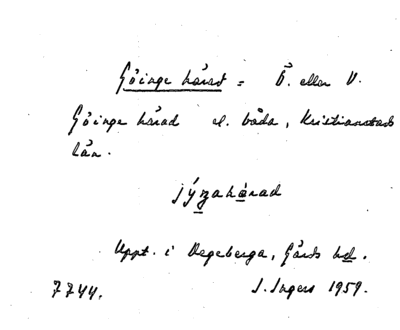 Göinge härad = Ö. eller V.
Göinge härad el. båda, Kristianstads
län.
jýŋahärad
Uppt. i Degeberga, Gärds hd.
7744. I. Ingers 1959.